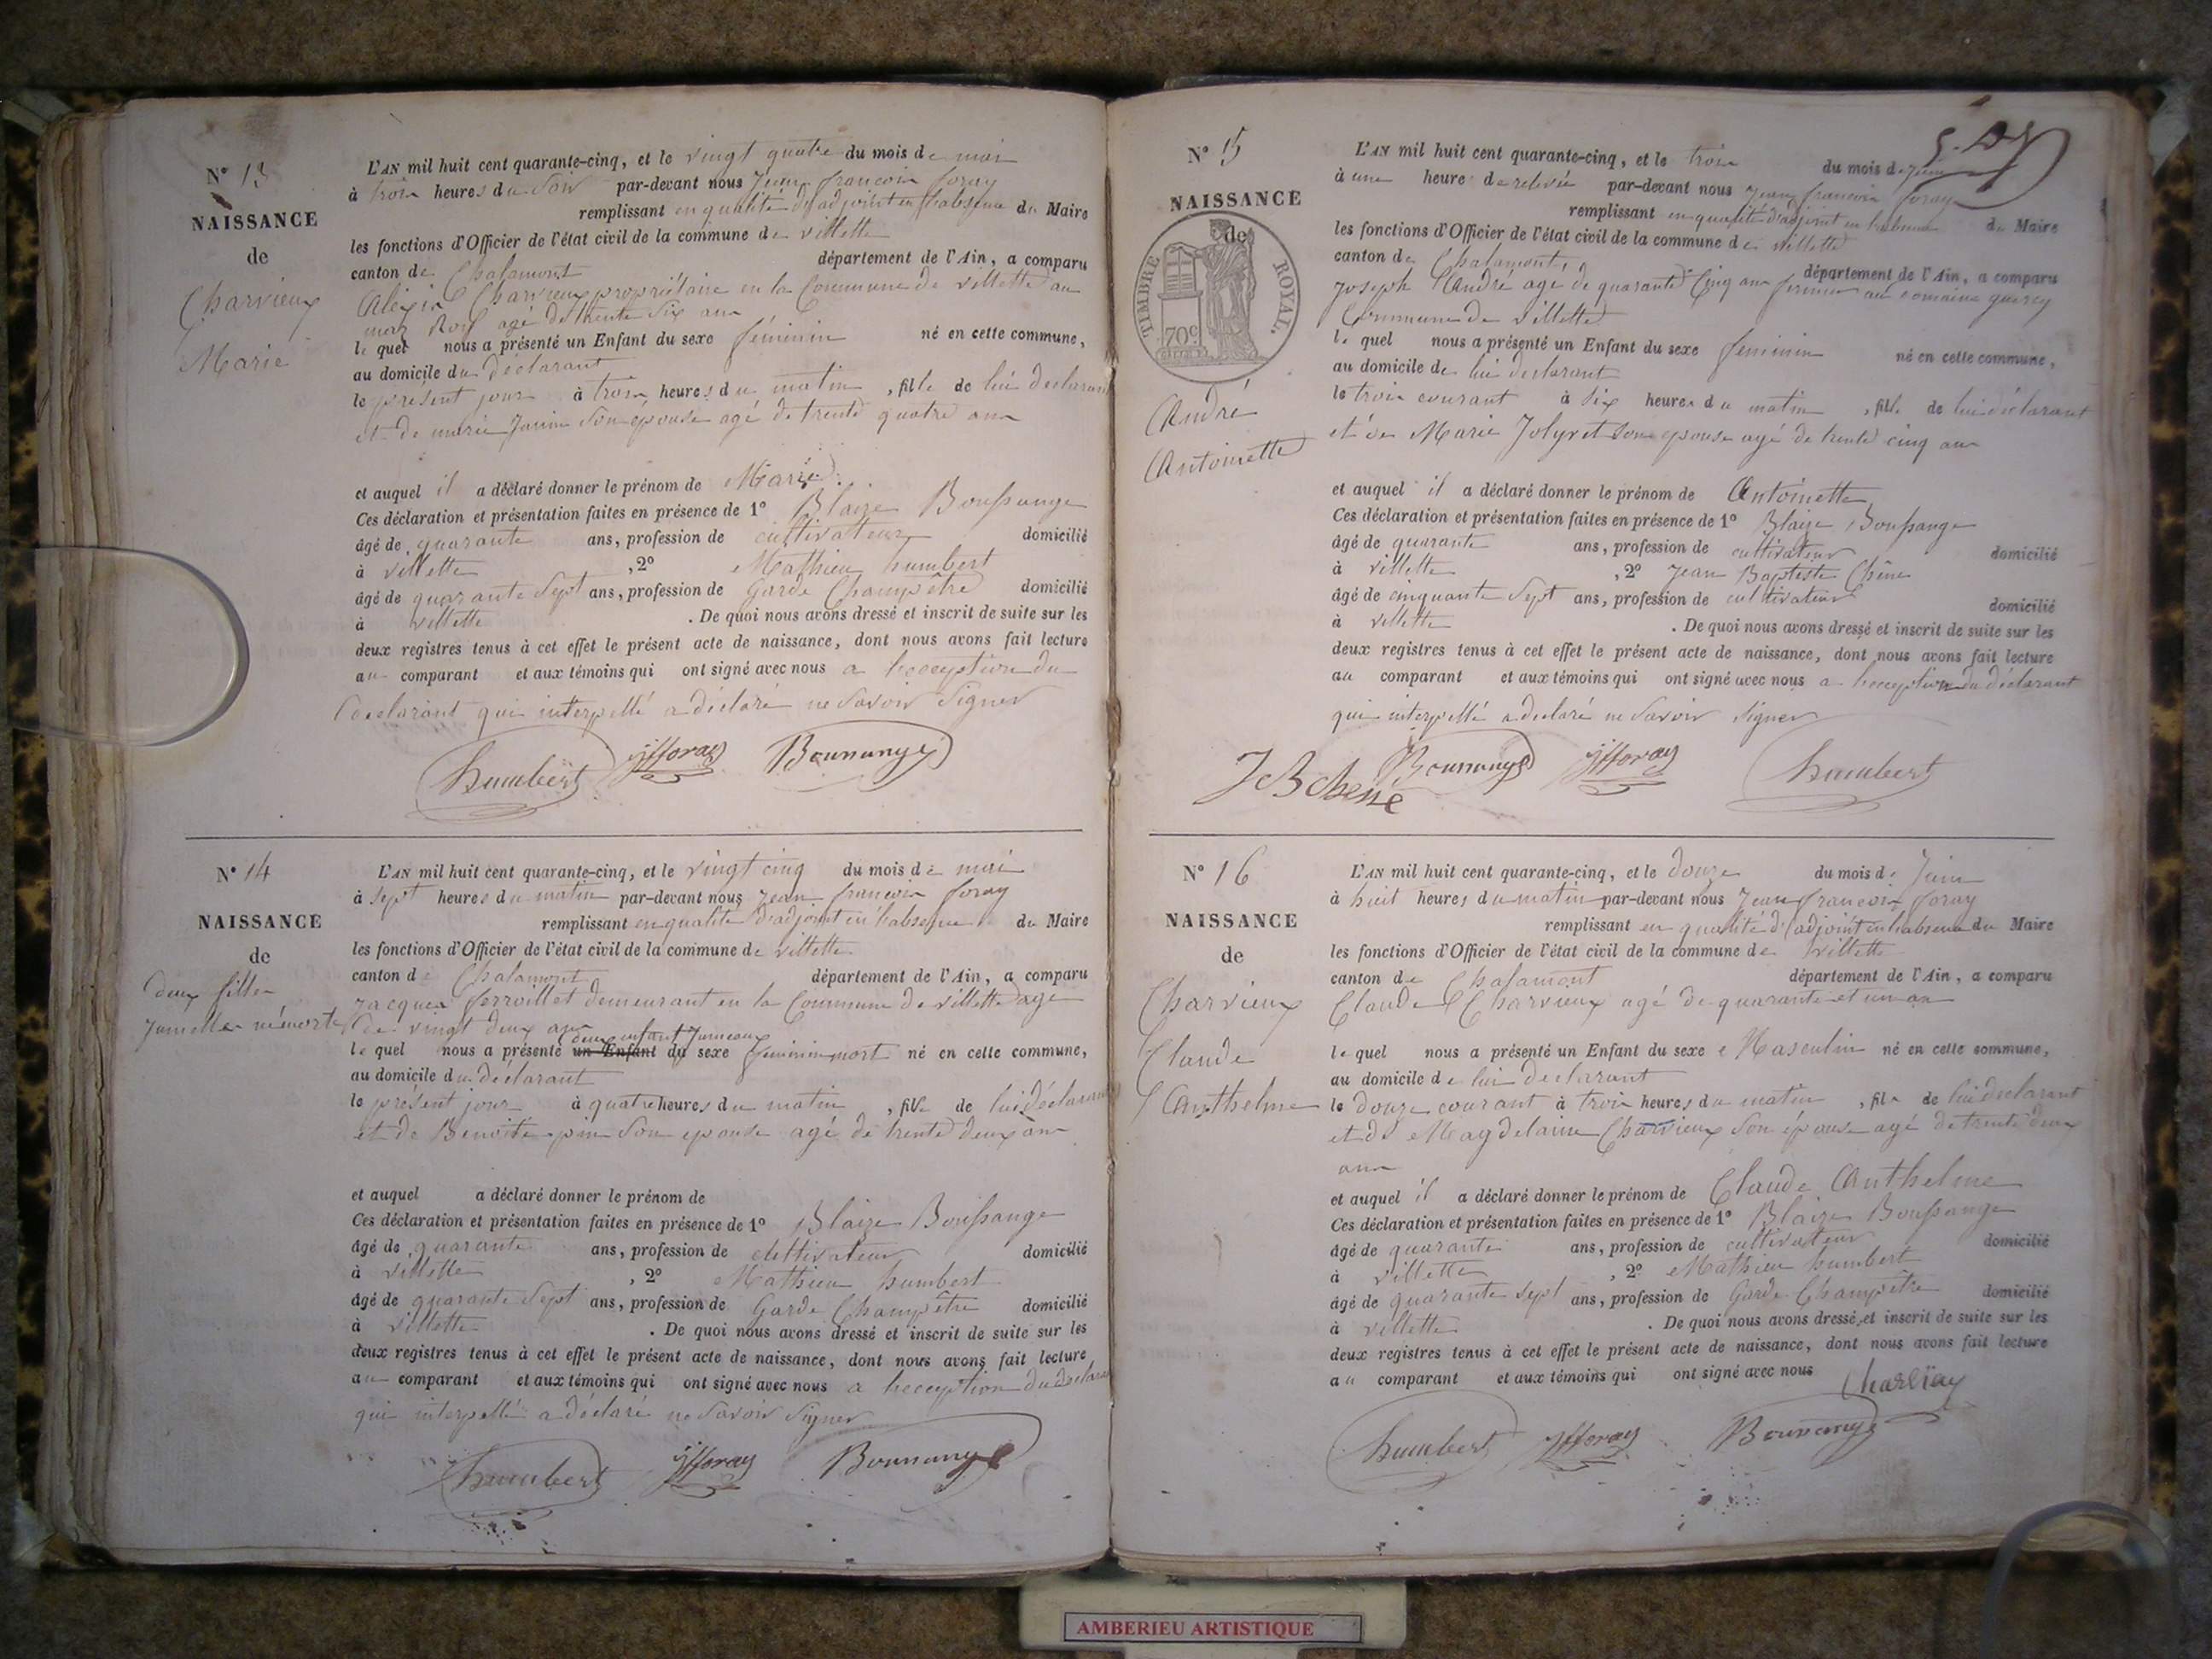 N° 13
NAISSANCE
de
Charvieux
Marie
L'AN mil huit cent quarante-cinq, et le vingt quatre du mois de mai
à trois heures du soir par-devant nous Jean françois foray
remplissant en qualité d'adjoint en l'absence du Maire
les fonctions d'Officier de l'état civil de la commune de villette
canton de Chalamont département de l'Ain, a comparu
Alexis Charvieux propriétaire en la Commune de villette au
maz Roy agé de trente six ans
le quel nous a présenté un Enfant du sexe féminin né en cette commune,
au domicile du déclarant
le présent jour à trois heures du matin, fille de lui déclarant
et de marie Janin son epouse agé de trente quatre ans
et auquel il a déclaré donner le prénom de Marie
Ces déclaration et présentation faites en présence de 1° Blaize Boussange
âgé de quarante ans, profession de cultivatteur domicilié
à villette, 2° Mathieu humbert
âgé de quarante sept ans, profession de Garde Champêtre domicilié
à villette. De quoi nous avons dressé et inscrit de suite sur les
deux registres tenus à cet effet le présent acte de naissance, dont nous avons fait lecture
au comparant et aux témoins qui ont signé avec nous a lecception du
declarant qui interpellé a déclaré ne savoir signer
humbert jfforay Boussange
N° 14
NAISSANCE
de
deux filles
Jumelles né morte
L'AN mil huit cent quarante-cinq, et le vingt cinq du mois de mai
à sept heures du matin par-devant nous Jean françois foray
remplissant en qualité d'adjoint en l'absence du Maire
les fonctions d'Officier de l'état civil de la commune de villette
canton de Chalamont département de l'Ain, a comparu
Jacques ferroillet demeurant en la Commune de villette agé
de vingt deux ans
deux enfant Jumeaux
le quel nous a présenté un Enfant du sexe féminin mort né en cette commune,
au domicile du déclarant
le présent jour à quatre heures du matin, fille de lui déclarant
et de Benoite pin son epouse agé de trente deux ans
et auquel a déclaré donner le prénom de
Ces déclaration et présentation faites en présence de 1° Blaize Boussange
âgé de quarante ans, profession de cultivateur domicilié
à villette, 2° Mathieu humbert
âgé de quarante sept ans, profession de Garde Champêtre domicilié
à villette. De quoi nous avons dressé et inscrit de suite sur les
deux registres tenus à cet effet le présent acte de naissance, dont nous avons fait lecture
au comparant et aux témoins qui ont signé avec nous a lecception du declarant
qui interpellé a déclaré ne savoir signer
humbert jfforay Boussange
N° 15
NAISSANCE
de
TIMBRE ROYAL.
70c
André
Antoinette
L'AN mil huit cent quarante-cinq, et le trois du mois de Juin
à une heure de relevée par-devant nous Jean françois foray
remplissant en qualité d'adjoint en l'absence du Maire
les fonctions d'Officier de l'état civil de la commune de villette
canton de Chalamont, département de l'Ain, a comparu
Joseph André agé de quarante Cinq ans fermier au domaine
Commune de villette
le quel nous a présenté un Enfant du sexe feminin né en cette commune,
au domicile de lui declarant
le trois courant à six heures du matin, fille de lui déclarant
et de Marie Jolyvet son epouse agé de trente cinq ans
et auquel il a déclaré donner le prénom de Antoinette
Ces déclaration et présentation faites en présence de 1° Blaize Boussange
âgé de quarante ans, profession de cultivateur domicilié
à villette, 2° Jean Baptiste Chêne
âgé de cinquante sept ans, profession de cultivateur domicilié
à villette. De quoi nous avons dressé et inscrit de suite sur les
deux registres tenus à cet effet le présent acte de naissance, dont nous avons fait lecture
au comparant et aux témoins qui ont signé avec nous a lecception du déclarant
qui interpellé a declaré ne savoir signer
JB chene Boussange jfforay humbert
N° 16
NAISSANCE
de
Charvieux
Claude
Anthelme
L'AN mil huit cent quarante-cinq, et le douze du mois de Juin
à huit heures du matin par-devant nous Jean françois foray
remplissant en qualité d'adjoint en l'absence du Maire
les fonctions d'Officier de l'état civil de la commune de villette
canton de Chalamont département de l'Ain, a comparu
Claude Charvieux agé de quarante et un an
le quel nous a présenté un Enfant du sexe Masculin né en cette commune,
au domicile de lui declarant
le douze courant à trois heures du matin, fils de lui declarant
et de Magdelaine Charvieux son épouse agé de trente deux
ans
et auquel il a déclaré donner le prénom de Claude Anthelme
Ces déclaration et présentation faites en présence de 1° Blaize Boussange
âgé de quarante ans, profession de cultivateur domicilié
à villette, 2° Mathieu humbert
âgé de quarante sept ans, profession de Garde Champêtre domicilié
à villette. De quoi nous avons dressé et inscrit de suite sur les
deux registres tenus à cet effet le présent acte de naissance, dont nous avons fait lecture
au comparant et aux témoins qui ont signé avec nous
humbert jfforay Boussange
AMBERIEU ARTISTIQUE